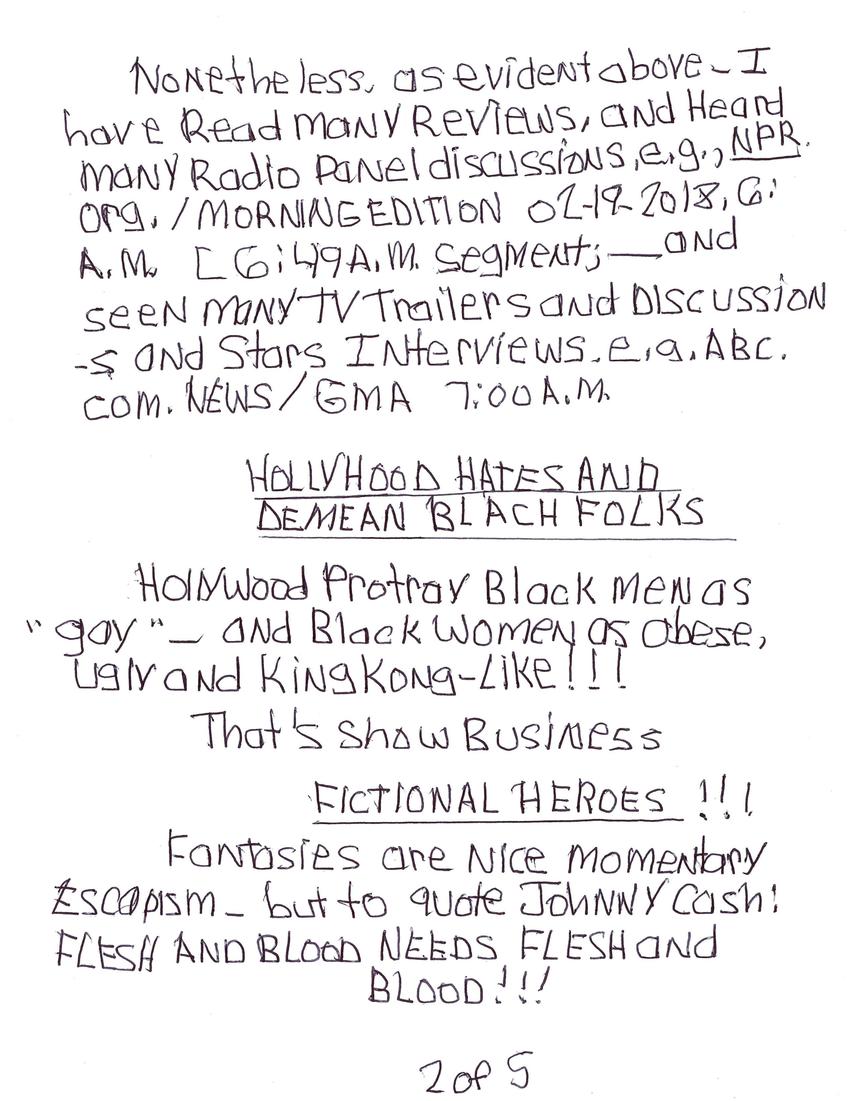 Nonetheless, as evident above - I
have Read many Reviews, and Heard
many Radio Panel discussions, e.g., NPR.
org. / MORNING EDITION 02-19-2018, 6:
A.M. [6:49 A.M. segment; — and
seen many TV Trailers and Discussion
-s and Stars Interviews. e.g. ABC.
com. NEWS / GMA 7:00 A.M.
HOLLYHOOD HATES AND
DEMEAN BLACH FOLKS
Hollywood Protray Black men as
"gay" — and Black Women as obese,
ugly and King Kong-Like!!!
That's Show Business
FICTIONAL HEROES !!!
Fantasies are nice momentary
Escapism - but to quote Johnny Cash:
FLESH AND BLOOD NEEDS FLESH and
BLOOD!!!
2 of 5